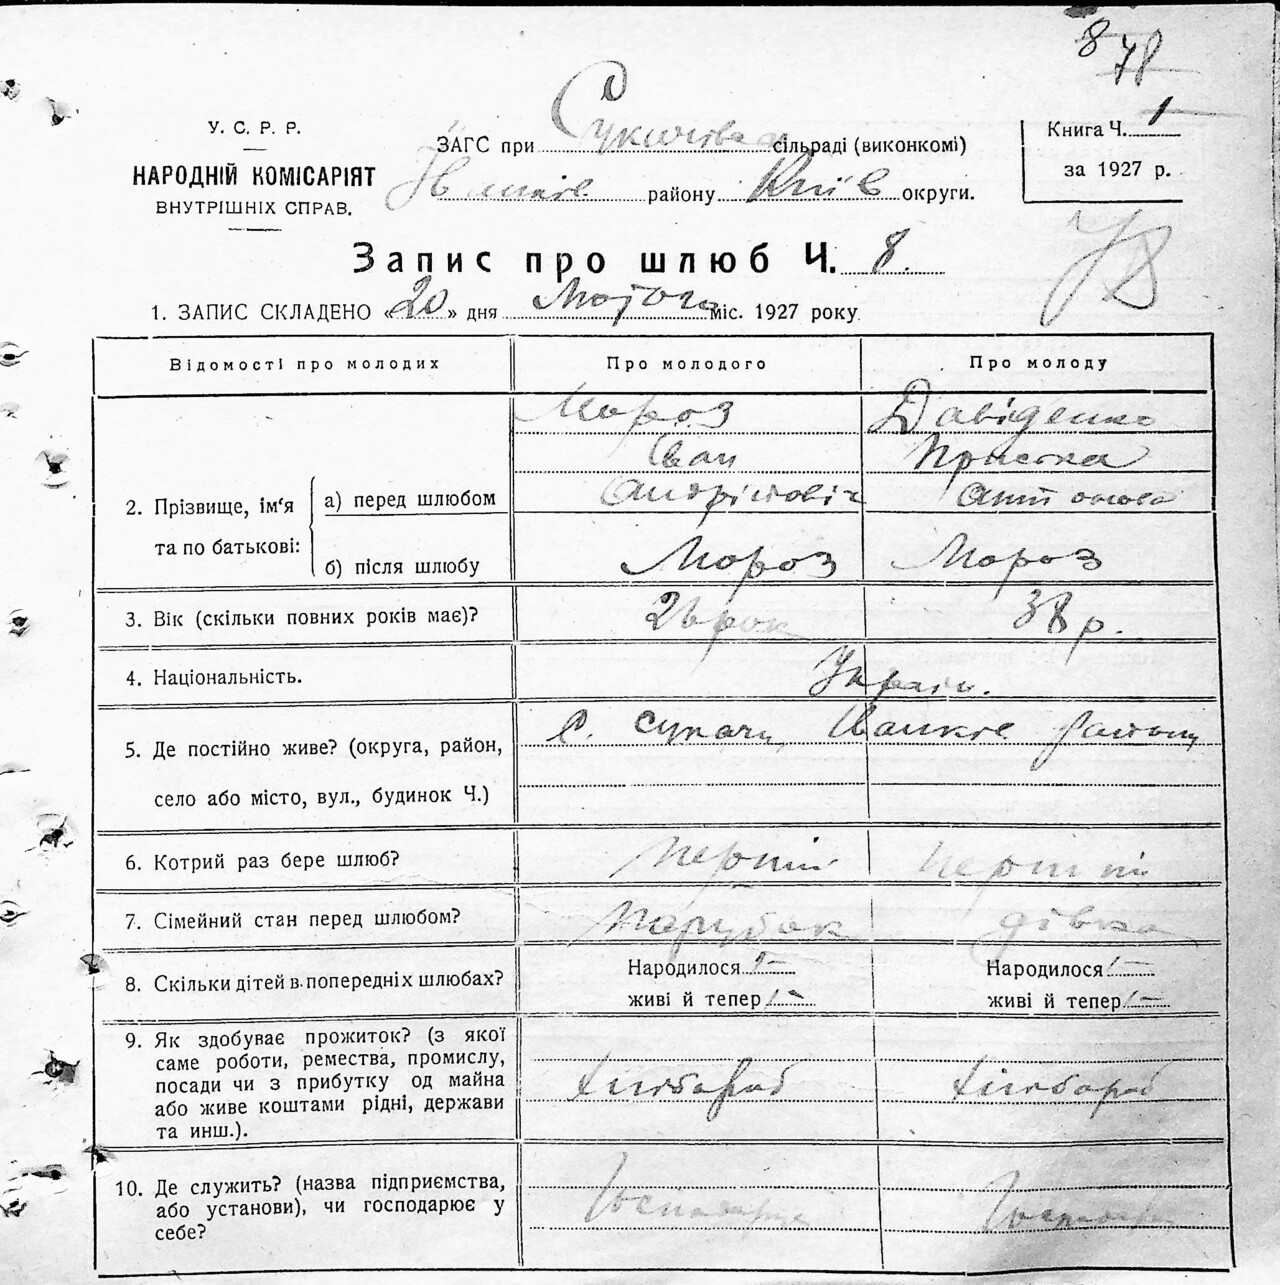 8
78
1
У. С. Р. Р.
НАРОДНІЙ КОМІСАРІЯТ
ВНУТРІШНІХ СПРАВ.
ЗАГС при сільраді (виконкомі)
району Київ округи.
Книга Ч. 1
за 1927 р.
Запис про шлюб Ч. 8.
1. ЗАПИС СКЛАДЕНО «20» дня Лютого міс. 1927 року
Відомості про молодих Про молодого Про молоду
2. Прізвище, ім‘я та по батькові:
а) перед шлюбом
Мороз Давіденко
Іван Пристка
Андрійовіч Антонова
б) після шлюбу Мороз Мороз
3. Вік (скільки повних років має)? 26 рок 38 р.
4. Національність. Україн.
5. Де постійно живе? (округа, район, село або місто, вул., будинок Ч.)
с. Сукачи, району
6. Котрий раз бере шлюб? перший перший
7. Сімейний стан перед шлюбом? парубок дівка
8. Скільки дітей в попередніх шлюбах? Народилося – Народилося –
живі й тепер – живі й тепер –
9. Як здобуває прожиток? (з якої
саме роботи, ремества, промислу,
посади чи з прибутку од майна
або живе коштами рідні, держави
та инш.).
хлібороб хлібороб
10. Де служить? (назва підприємства,
або установи), чи господарює у
себе?